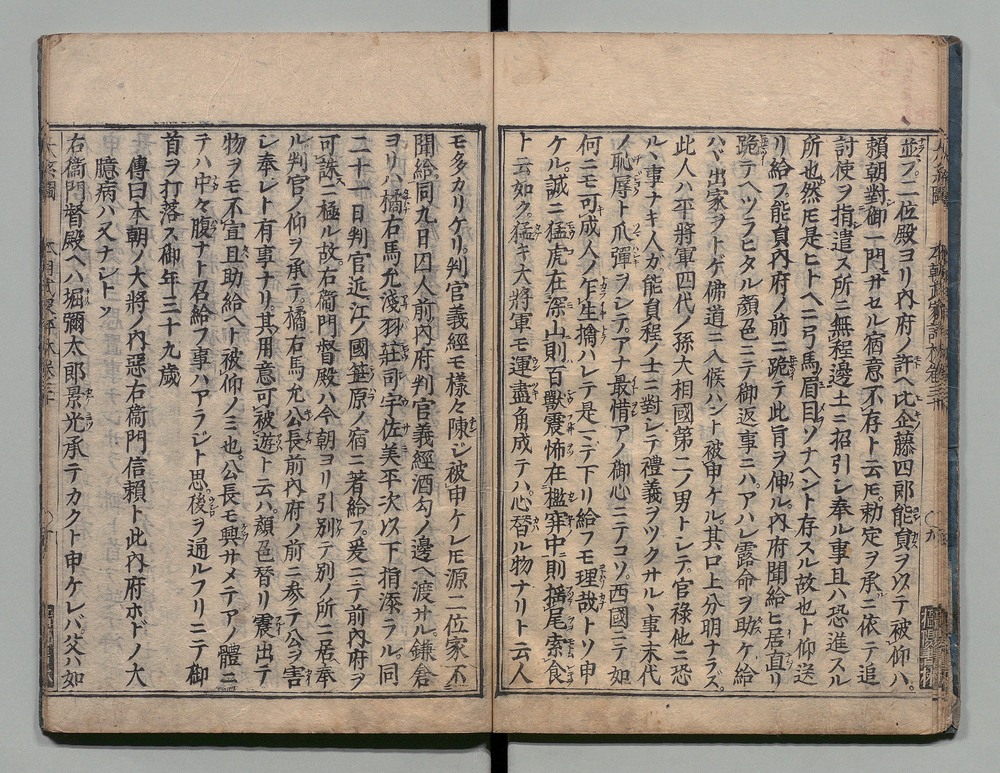 並ブ二位殿ヨリ内府ノ許ヘ比企藤四郎能貟ヲ以テ被仰ハ。
頼朝對御一門サセル宿意不存ト云𪜈。勅定ヲ承ニ依テ追
討使ヲ指遣ス所ニ無程邊土ニ招引シ奉ル事且ハ恐進スル
所也然𪜈是ヒトヘニ弓馬眉目ソナヘント存スル故也ト仰送
リ給フ。能貟内府ノ前ニ跪テ此旨ヲ伸ル。内府聞給ヒ居直リ
跪テヘツラヒタル顔色ニテ御返事ニハ。アハレ露命ヲ助ケ給
ハヽ出家ヲトゲ佛道ニ入候ハント被申ケル。其口上分明ナラズ。
此人ハ平將軍四代ノ孫大相國第二ノ男トシテ。官祿他ニ恐
ルヽ事ナキ人カ。能貟程ノ士ニ對シテ禮義ヲツクサルヽ事末代
ノ恥辱ト爪彈ヲシテ。アナ最惜アノ御心ニテコソ。西國ニテ如
何ニモ可成人ノ乍生擒ハレテ是マデ下リ給フモ理哉トソ申
ケル。誠ニ猛虎在深山則百獸震怖在檻穽中則揺尾索食
ト云如ク。猛キ大將軍モ運盡角成テハ心替ル物ナリト云人
モ多カリケリ。判官義經モ樣々陳シ被申ケレ𪜈源二位家不
聞給同九日囚人前内府判官義經酒勾ノ邊ヘ渡サル。鎌倉
ヨリハ橘右馬允淺羽莊司宇佐美平次以下指添ラル。同
二十一日判官近江ノ國篠原ノ宿ニ著給フ。爰ニテ前内府ヲ
可誅ニ極ル故右衞門督殿ハ今朝ヨリ引別テ別ノ所ニ居奉
ル判官ノ仰ヲ承テ。橘右馬允公長前内府ノ前ニ參テ公ヲ害
シ奉レト有事ナリ其用意可被遊ト云ハ。顔色替リ震出テ
物ヲモ不宣且助給ヘト被仰ノミ也。公長モ興サメテアノ體ニ
テハ中々腹ナト召給フ事ハアラジト思。後ヲ通ルフリニテ御
首ヲ打落ス御年三十九歳
傳曰本朝ノ大將ノ内惡右衞門信頼ト此内府ホドノ大
臆病ハ又ナシトソ
右衞門督殿ヘハ堀彌太郎景光承テカクト申ケレバ父ハ如